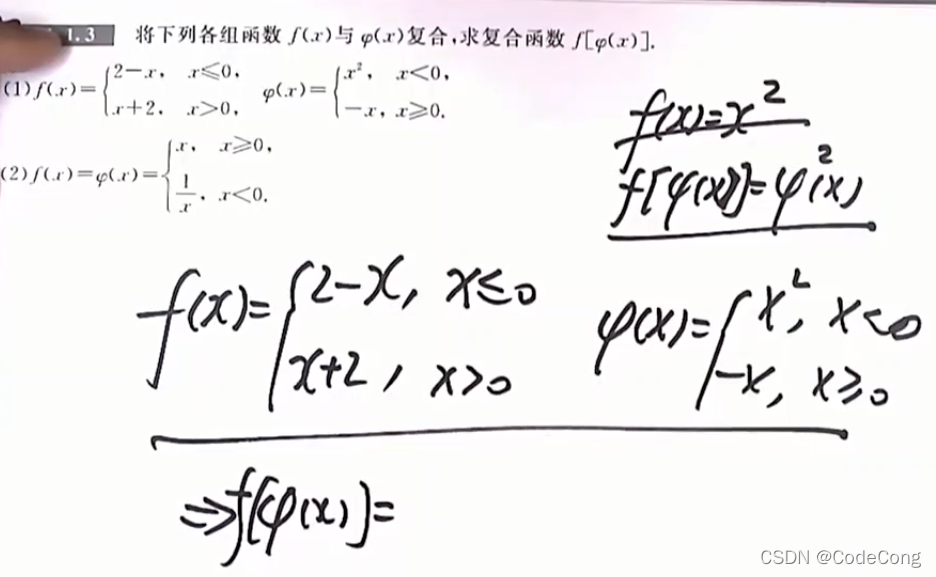 1.3 将下列各组函数 f(x)与 φ(x)复合,求复合函数 f[φ(x)].
(1) f(x)={2-x, x≤0, x+2, x>0, φ(x)={x², x<0, -x, x≥0.
(2) f(x)=φ(x)={x, x≥0, 1/x, x<0.
f(x)=x²
f[φ(x)]=φ²(x)
f(x)={2-x, x≤0 x+2, x>0
φ(x)={x², x<0 -x, x≥0
⇒f[φ(x)]=
CSDN @CodeCong